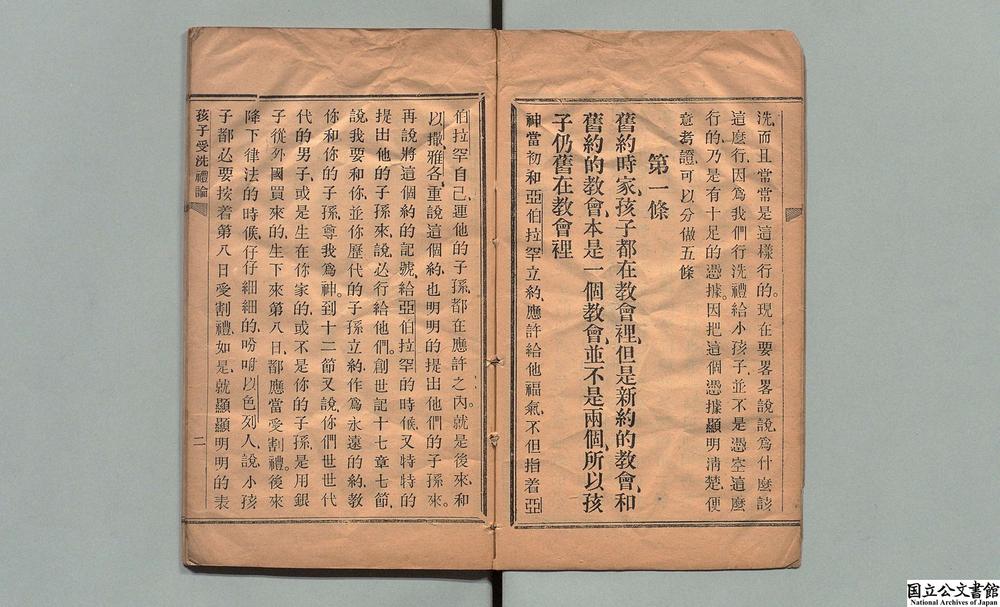 洗而且常常是這樣行的、現在要畧畧說說、爲什麼該
這麼行、因爲我們行洗禮給小孩子、並不是憑空這麼
行的、乃是有十足的憑據。因把這個憑據顯明清楚、便
意考證、可以分做五條
第一條
舊約時家、孩子都在教會裡、但是新約的教會、和
舊約的教會、本是一個教會、並不是兩個、所以孩
子仍舊在教會裡
神當初和亞伯拉罕立約、應許給他福氣、不但指着亞
伯拉罕自己、連他的子孫都在應許之內。就是後來、和
以撒雅各、重說這個約、也明明的提出他們的子孫來。
再說將這個約的記號、給亞伯拉罕的時候、又特特的
提出他的子孫來說、必行給他們。創世記十七章七節、
說我要和你、並你歷代的子孫立約、作爲永遠的約、教
你和你的子孫、尊我爲神。到十二節又說、你們世世代
代的男子、或是生在你家的、或不是你的子孫、是用銀
子從外國買來的、生下來第八日、都應當受割禮。後來
降下律法的時候、仔仔細細的、吩咐以色列人、說小孩
子都必要按着第八日受割禮、如是、就顯顯明明的表
孩子受洗禮論
二
国立公文書館
National Archives of Japan